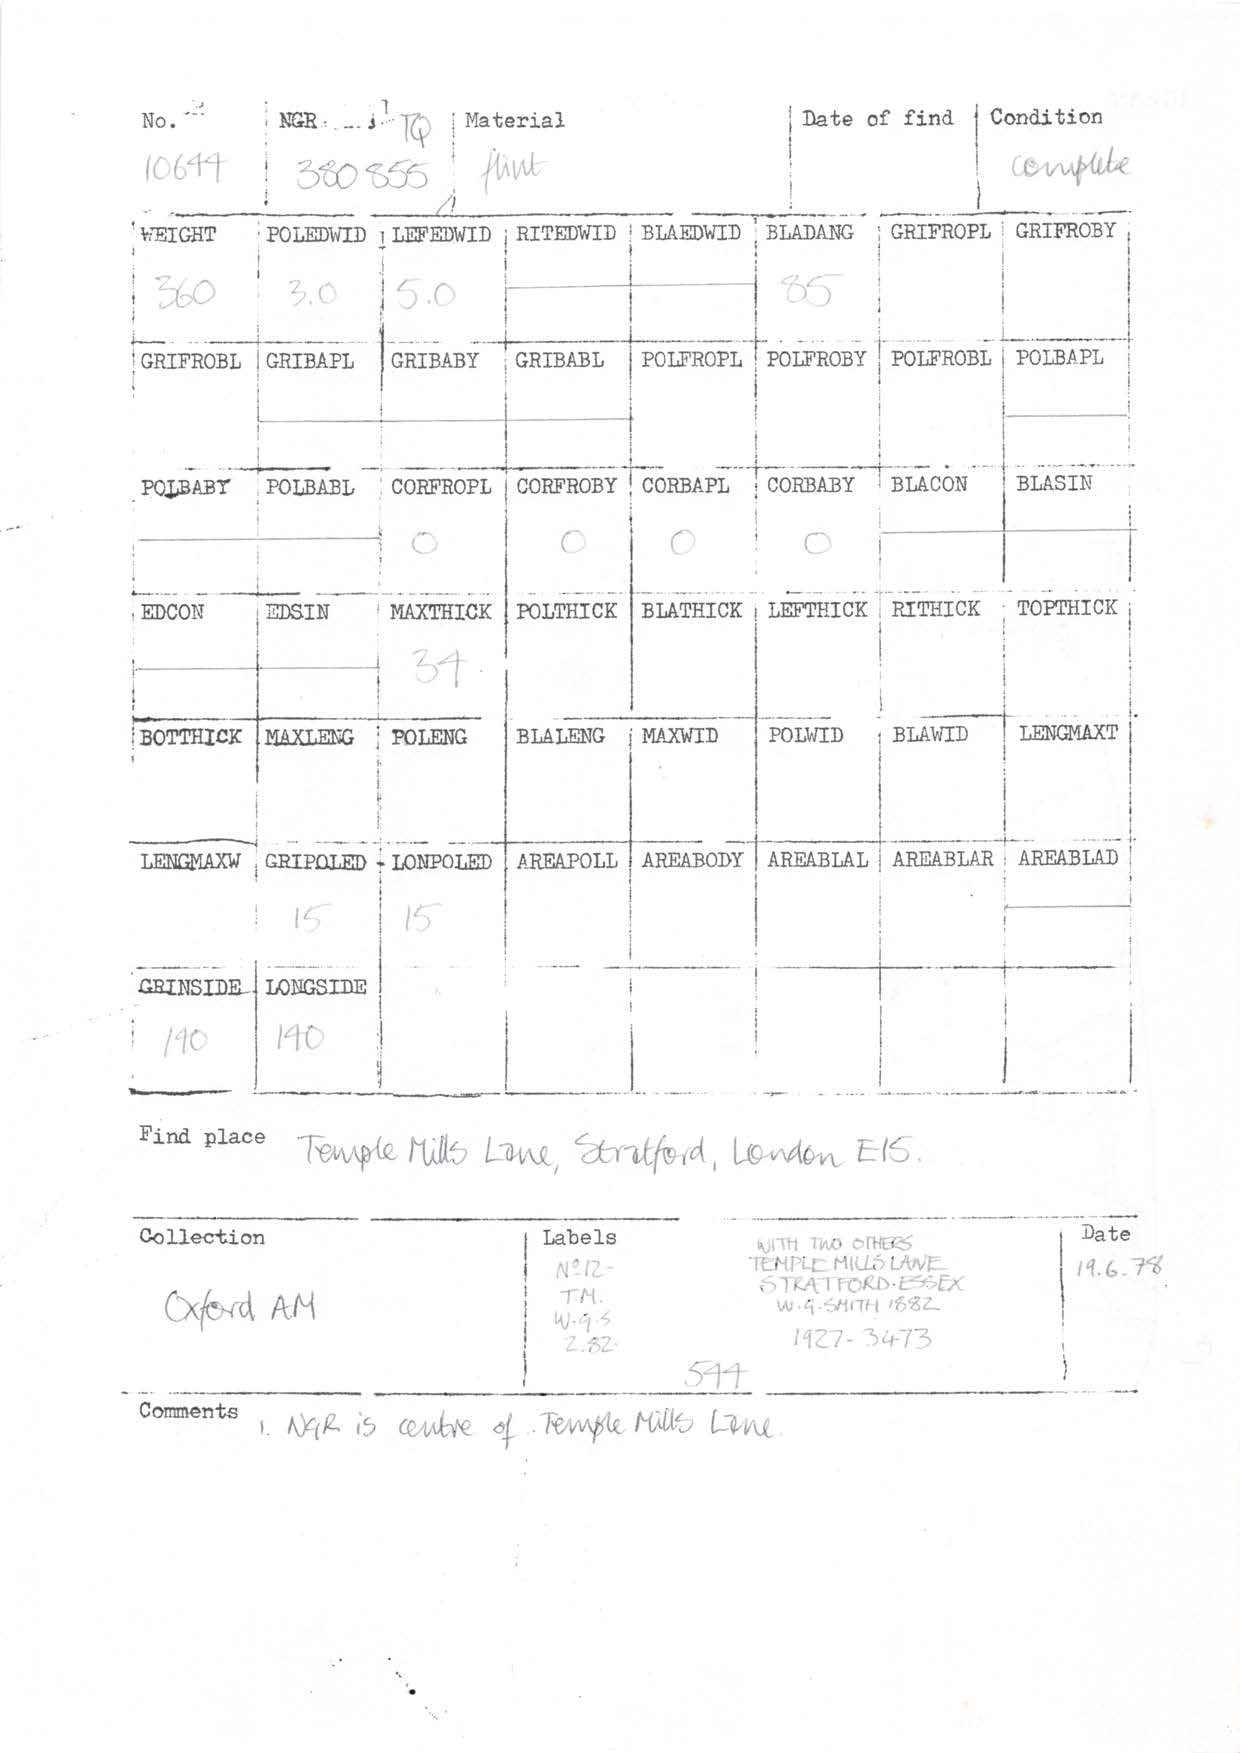 No. NGR TQ Material Date of find Condition
10644 380855 flint complete
WEIGHT POLEDWID LEFEDWID RITEDWID BLAEDWID BLADANG GRIFROPL GRIFROBY
360 3.0 5.0 85
GRIFROBL GRIBAPL GRIBABY GRIBABL POLFROPL POLFROBY POLFROBL POLBAPL
POLBABY POLBABL CORFROPL CORFROBY CORBAPL CORBABY BLACON BLASIN
0 0 0 0
EDCON EDSIN MAXTHICK POLTHICK BLATHICK LEFTHICK RITHICK TOPTHICK
34
BOTTHICK MAXLENG POLENG BLALENG MAXWID POLWID BLAWID LENGMAXT
LENGMAXW GRIPOLED LONPOLED AREAPOLL AREABODY AREABLAL AREABLAR AREABLAD
15 15
GRINSIDE LONGSIDE
190 190
Find place Temple Mills Lane, Stratford, London E15.
Collection Labels Date
Oxford AM
Nº12-
T.M.
W.G.S
2.82.
WITH TWO OTHERS
TEMPLE MILLS LANE
STRATFORD·ESSEX
W.G.SMITH 1882
1927-3473
544
19.6.78
Comments 1. NGR is centre of Temple Mills Lane.